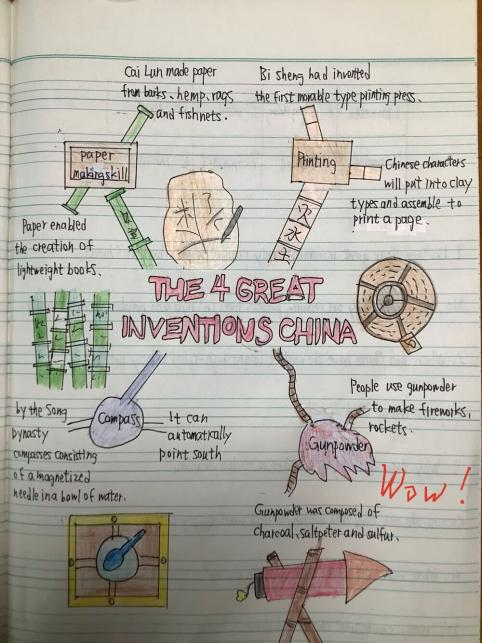 Cai Lun made paper
from barks, hemp, rags
and fishnets.
Bi sheng had invented
the first movable type printing press.
paper
making skill
Printing
Chinese characters
will put into clay
types and assemble to
print a page.
Paper enabled
the creation of
lightweight books.
水
THE 4 GREAT
INVENTIONS CHINA
by the Song
Dynasty
compasses consisting
of a magnetized
needle in a bowl of water.
Compass
It can
automatically
point south
People use gunpowder
to make fireworks,
rockets.
Gunpowder
Wow!
Gunpowder was composed of
charcoal, saltpeter and sulfur.